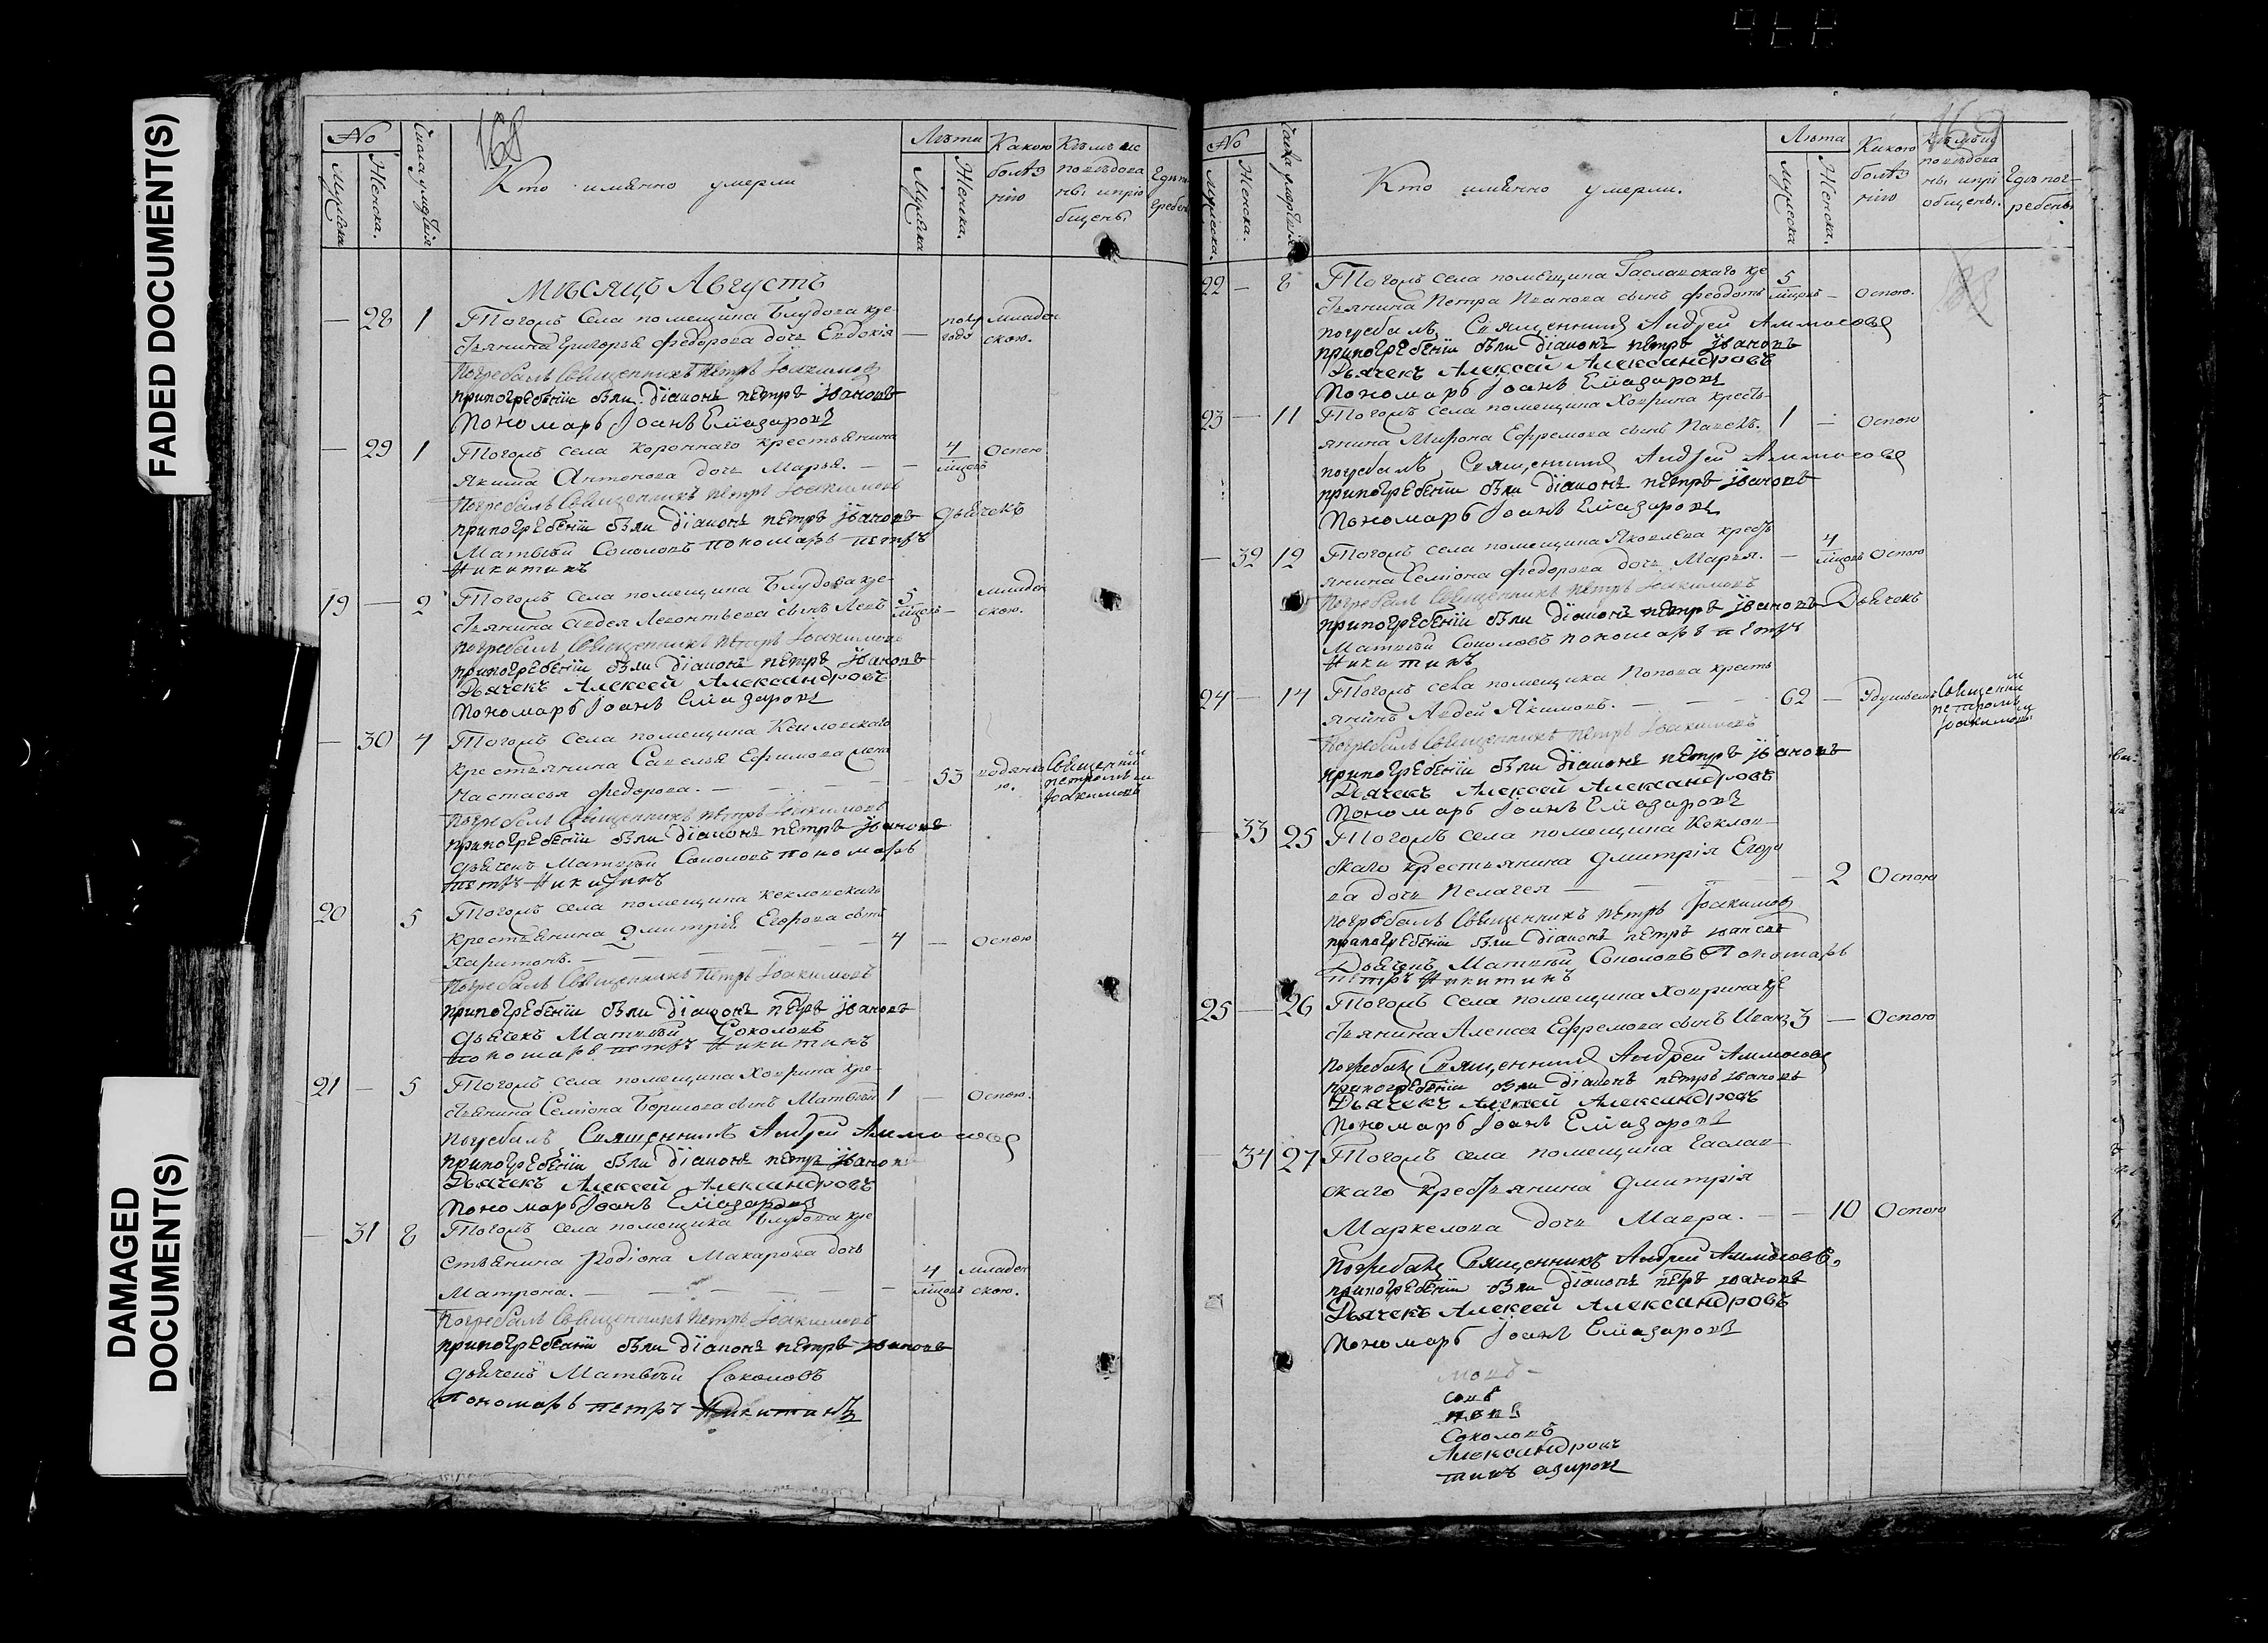 FADED DOCUMENT(S)
DAMAGED
DOCUMENT(S)
168
No
Мужеска
Женска.
Кто имянно умерли
Лѣта
Мужска
Женска.
Какою
болѣз
нiю
Кѣмъ ис
повѣдова
ны и прiо
бщены.
Гдѣ по
гребен
Мѣсяцъ Августъ
— 28 1 Тогомъ Села помещика Блудова кре-
стьянина Григорья Федорова дочь Евдокiя — полу года младен скою.
Погребалъ Священникъ Петръ Iоакимов
при погребенiи были Дiаконъ Петръ Iвановъ
Пономарь Iоанъ Елиазаровъ
— 29 1 Тогомъ села Коронного крестьянина
Якима Антонова дочь Марья. — — 4 мцовъ Оспою
Погребалъ Священникъ Петръ Iоакимовъ
при погребенiи были Дiаконъ Петръ Iвановъ дьячекъ
Матвѣй Соколовъ пономарь петръ
Никитинъ
19 — 2 Тогомъ Села помещика Блудова кре-
стьянина Авдея Леонтьева сынъ Левъ 5 мцовъ — младен скою.
погребалъ Священникъ Петръ Iоакимовъ
при погребенiи были Дiаконъ Петръ Iвановъ
Дьячекъ Алексей Александровъ
Пономарь Iоанъ Елиазаровъ
— 30 4 Тогомъ Села помещика Кекловскаго
крестьянина Савелья Ефимова жена
Настасья Федорова. — — — 53 водянко ю. Священни
петромъ
Iоакимовы
Погребалъ Священникъ Петръ Iоакимовъ
при погребенiи были Дiаконъ Петръ Iвановъ
дьячекъ Матвѣй Соколовъ пономарь
петръ Никитинъ
20 5 Тогомъ села помещика Кекловскаго
крестьянина Дмитрiя Егорова сынъ
Харитонъ. — — — 4 — Оспою
Погребалъ Священникъ Петръ Iоакимовъ
при погребенiи были Дiаконъ Петръ Iвановъ
дьячекъ Матвѣй Соколовъ
пономарь петръ Никитинъ
21 — 5 Тогомъ села помещика Ховрина кре-
стьянина Семiона Борисова сынъ Матвѣй 1 — Оспою.
погребалъ Священникъ Андрей Аммосовъ
при погребенiи были Дiаконъ Петръ Iвановъ
Дьячекъ Алексей Александровъ
Пономарь Iоанъ Елиазаровъ
— 31 8 Тогомъ села помещика Блудова кре
стьянина Родiона Макарова дочь
Матрона. — — — 4 мцовъ младен скою.
Погребалъ Священникъ Петръ Iоакимовъ
при погребенiи были Дiаконъ Петръ Iвановъ
дьячекъ Матвѣй Соколовъ
Пономарь петръ Никитинъ
169
No
Мужеска.
Женска.
Кто имянно умерли.
Лѣта
Мужеска
Женска.
Какою
болѣз
нiю
Кѣмъ ис
повѣдова
ны и прi
общены.
Гдѣ пог-
ребены
22 — 8 Тогомъ села помѣщика Гаславскаго кре
стьянина Петра Иванова сынъ Феодотъ 5 мцовъ — Оспою.
погребалъ Священникъ Андрей Аммосовъ
при погребенiи были Дiаконъ Петръ Iвановъ
Дьячекъ Алексей Александровъ
Пономарь Iоанъ Елиазаровъ
23 — 11 Тогомъ села помещика Ховрина кресть-
янина Мирона Ефремова сынъ Павелъ. 1 — Оспою
погребалъ Священникъ Андрей Аммосовъ
при погребенiи были Дiаконъ Петръ Iвановъ
Пономарь Iоанъ Елиазаровъ
— 32 12 Тогомъ села помещика Яковлева кресть
янина Семiона Федорова дочь Марья. — 4 мцовъ Оспою
Погребалъ Священникъ Петръ Iоакимовъ
при погребенiи были Дiаконъ Петръ Iвановъ Дьячекъ
Матвѣй Соколовъ пономарь петръ
Никитинъ
24 — 14 Тогомъ села помещика Попова кресть
янинъ Авдей Якимовъ. — — — 62 — Удушьемъ Священни
петромъ
Iоакимовы
Погребалъ Священникъ Петръ Iоакимовъ
при погребенiи были Дiаконъ Петръ Iвановъ
Дьячекъ Алексей Александровъ
Пономарь Iоанъ Елиазаровъ
— 33 25 Тогомъ села помещика Кеклов-
скаго крестьянина Дмитрiя Егоро
ва дочь Пелагея — — — 2 Оспою
погребалъ Священникъ Петръ Iоакимов
при погребенiи были Дiаконъ Петръ Iвановъ
Дьячекъ Матвѣй Соколовъ Пономарь
петръ Никитинъ
25 — 26 Тогомъ села помещика Ховрина кре
стьянина Алексея Ефремова сынъ Иванъ 3 — Оспою
погребалъ Священникъ Андрей Аммосовъ
при погребенiи были Дiаконъ Петръ Iвановъ
Дьячекъ Алексей Александровъ
Пономарь Iоанъ Елиазаровъ
— 34 27 Тогомъ села помещика Гаслав-
скаго крестьянина Дмитрiя
Маркелова дочь Мавра. — — 10 Оспою
Погребалъ Священникъ Андрей Аммосовъ.
при погребенiи были Дiаконъ Петръ Iвановъ
Дьячекъ Алексей Александровъ
Пономарь Iоанъ Елиазаровъ
мовъ —
совъ
новъ
Соколовъ
Александровъ
тинъ азаровъ